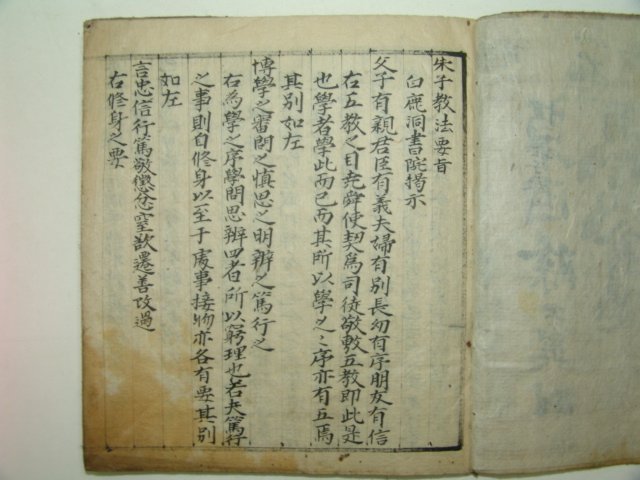 朱子教法要旨
白鹿洞書院揭示
父子有親君臣有義夫婦有別長幼有序朋友有信
右五教之目堯舜使契爲司徒敬敷五教即此是
也學者學此而已而其所以學之〻序亦有五焉
其別如左
博學之審問之慎思之明辨之篤行之
右為學之序學問思辨四者所以窮理也若夫篤行
之事則自修身以至于處事接物亦各有要其別
如左
言忠信行篤敬懲忿窒欲遷善改過
右修身之要